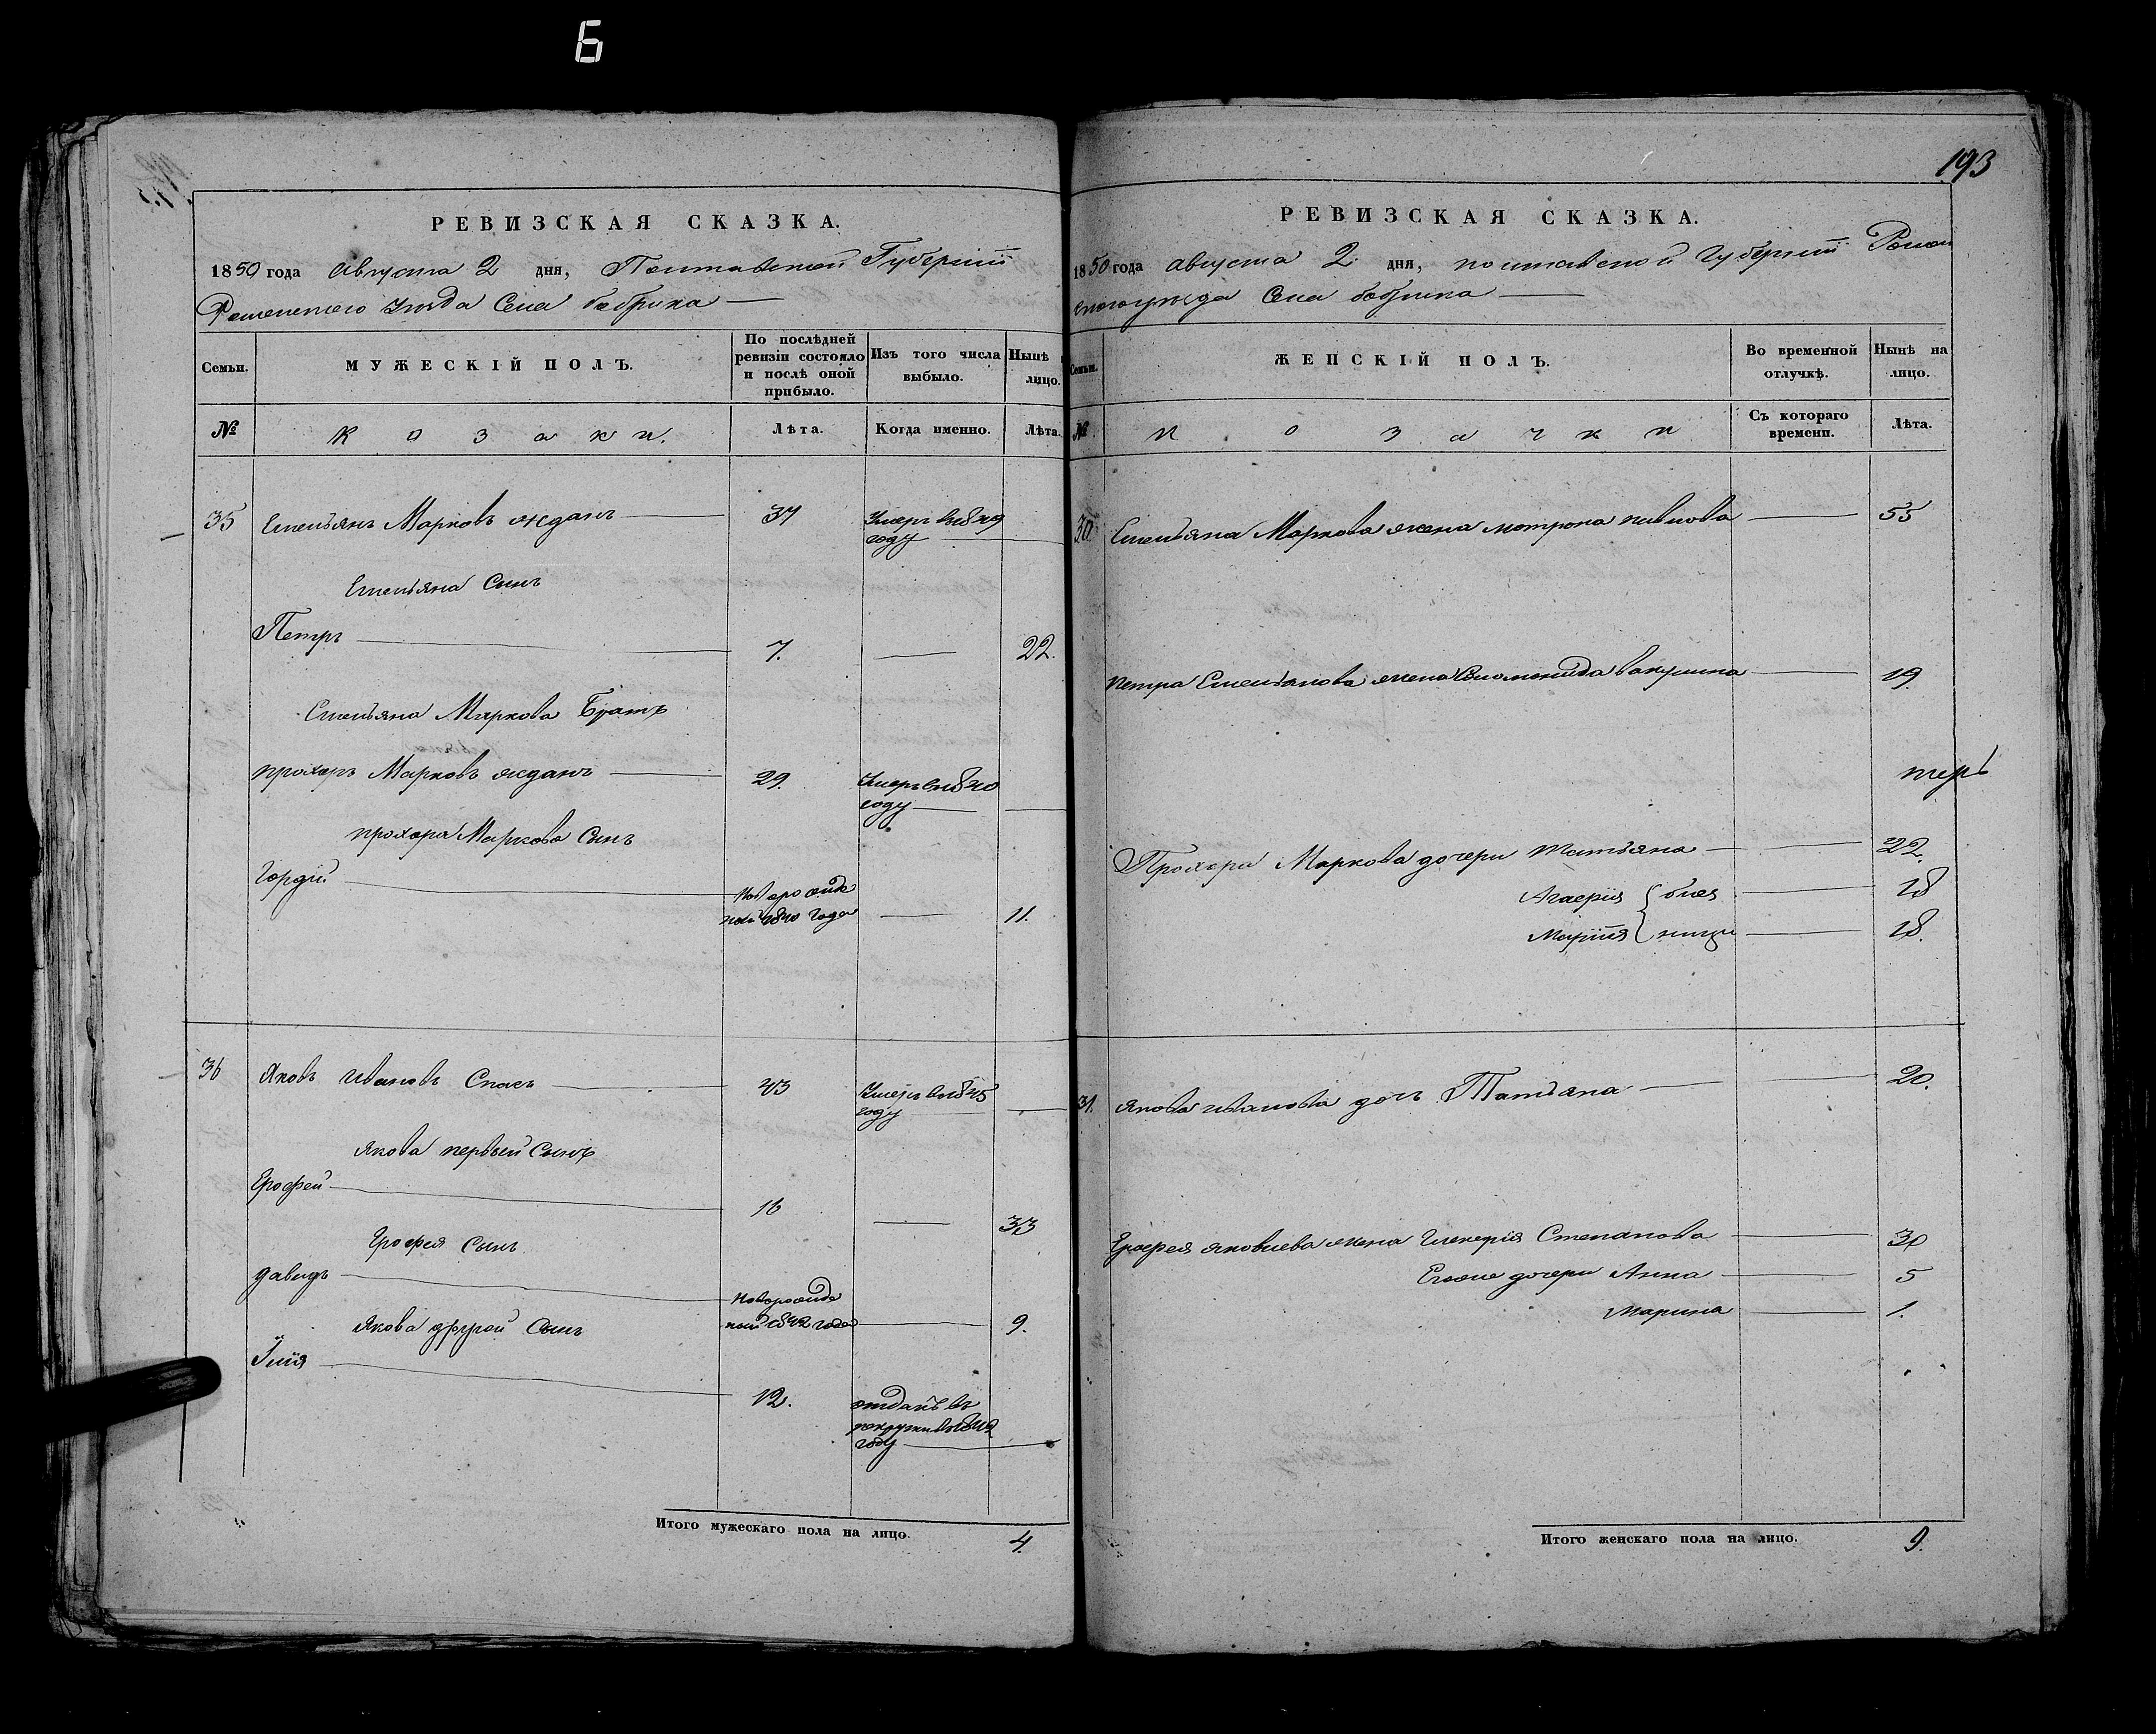 Б
РЕВИЗСКАЯ СКАЗКА.
1850 года Августа 2 дня, Полтавской Губернiи
Роменского уезда Села бобрика
Семьи.
МУЖЕСКIЙ ПОЛЪ.
По послѣдней ревизiи состояло и послѣ оной прибыло.
Изъ того числа выбыло.
Нынѣ
лицо.
№
Козаки.
Лѣта.
Когда именно.
Лѣта.
35 Емельянъ Марковъ ждань 37 Умеръ въ 1849
году
Емельяна Сынъ
Петръ 7. 22.
Емельяна Маркова Братъ
прохоръ Марковъ ждань 29. Умеръ въ 1840
году
прохора Маркова Сынъ
Гордiй Новорожде
ный 1840 года 11.
36 Яковъ Ивановъ Спасъ 43 Умеръ въ 1845
году
Якова первый Сынъ
Ерофей 16 33
Ерофея Сынъ
давидъ Новорожде
ный 1842 года 9.
Якова другой Сынъ
Iлiя 12. отданъ въ
рекруты въ
году
Итого мужескаго пола на лицо. 4.
193
РЕВИЗСКАЯ СКАЗКА.
1850 года августа 2 дня, полтавской Губернiи Ромен
ского уезда Села бобрика
Семьи.
ЖЕНСКIЙ ПОЛЪ.
Во временной отлучкѣ.
Нынѣ на лицо.
№
Козачки
Съ котораго времени.
Лѣта.
30. Емельяна Маркова жена мотрона павлова 55
петра Емельянова жена Соломонида вакулина 19.
Прохора Маркова дочери Татьяна 22.
Агаерiя { близ 18
Марiия { ницы 18.
31. якова иванова дочь Татьяна 20.
Ерофея яковлева жена Гликерiя Степанова 30
Егоже дочери Анна 5
Марина 1.
Итого женскаго пола на лицо. 9.